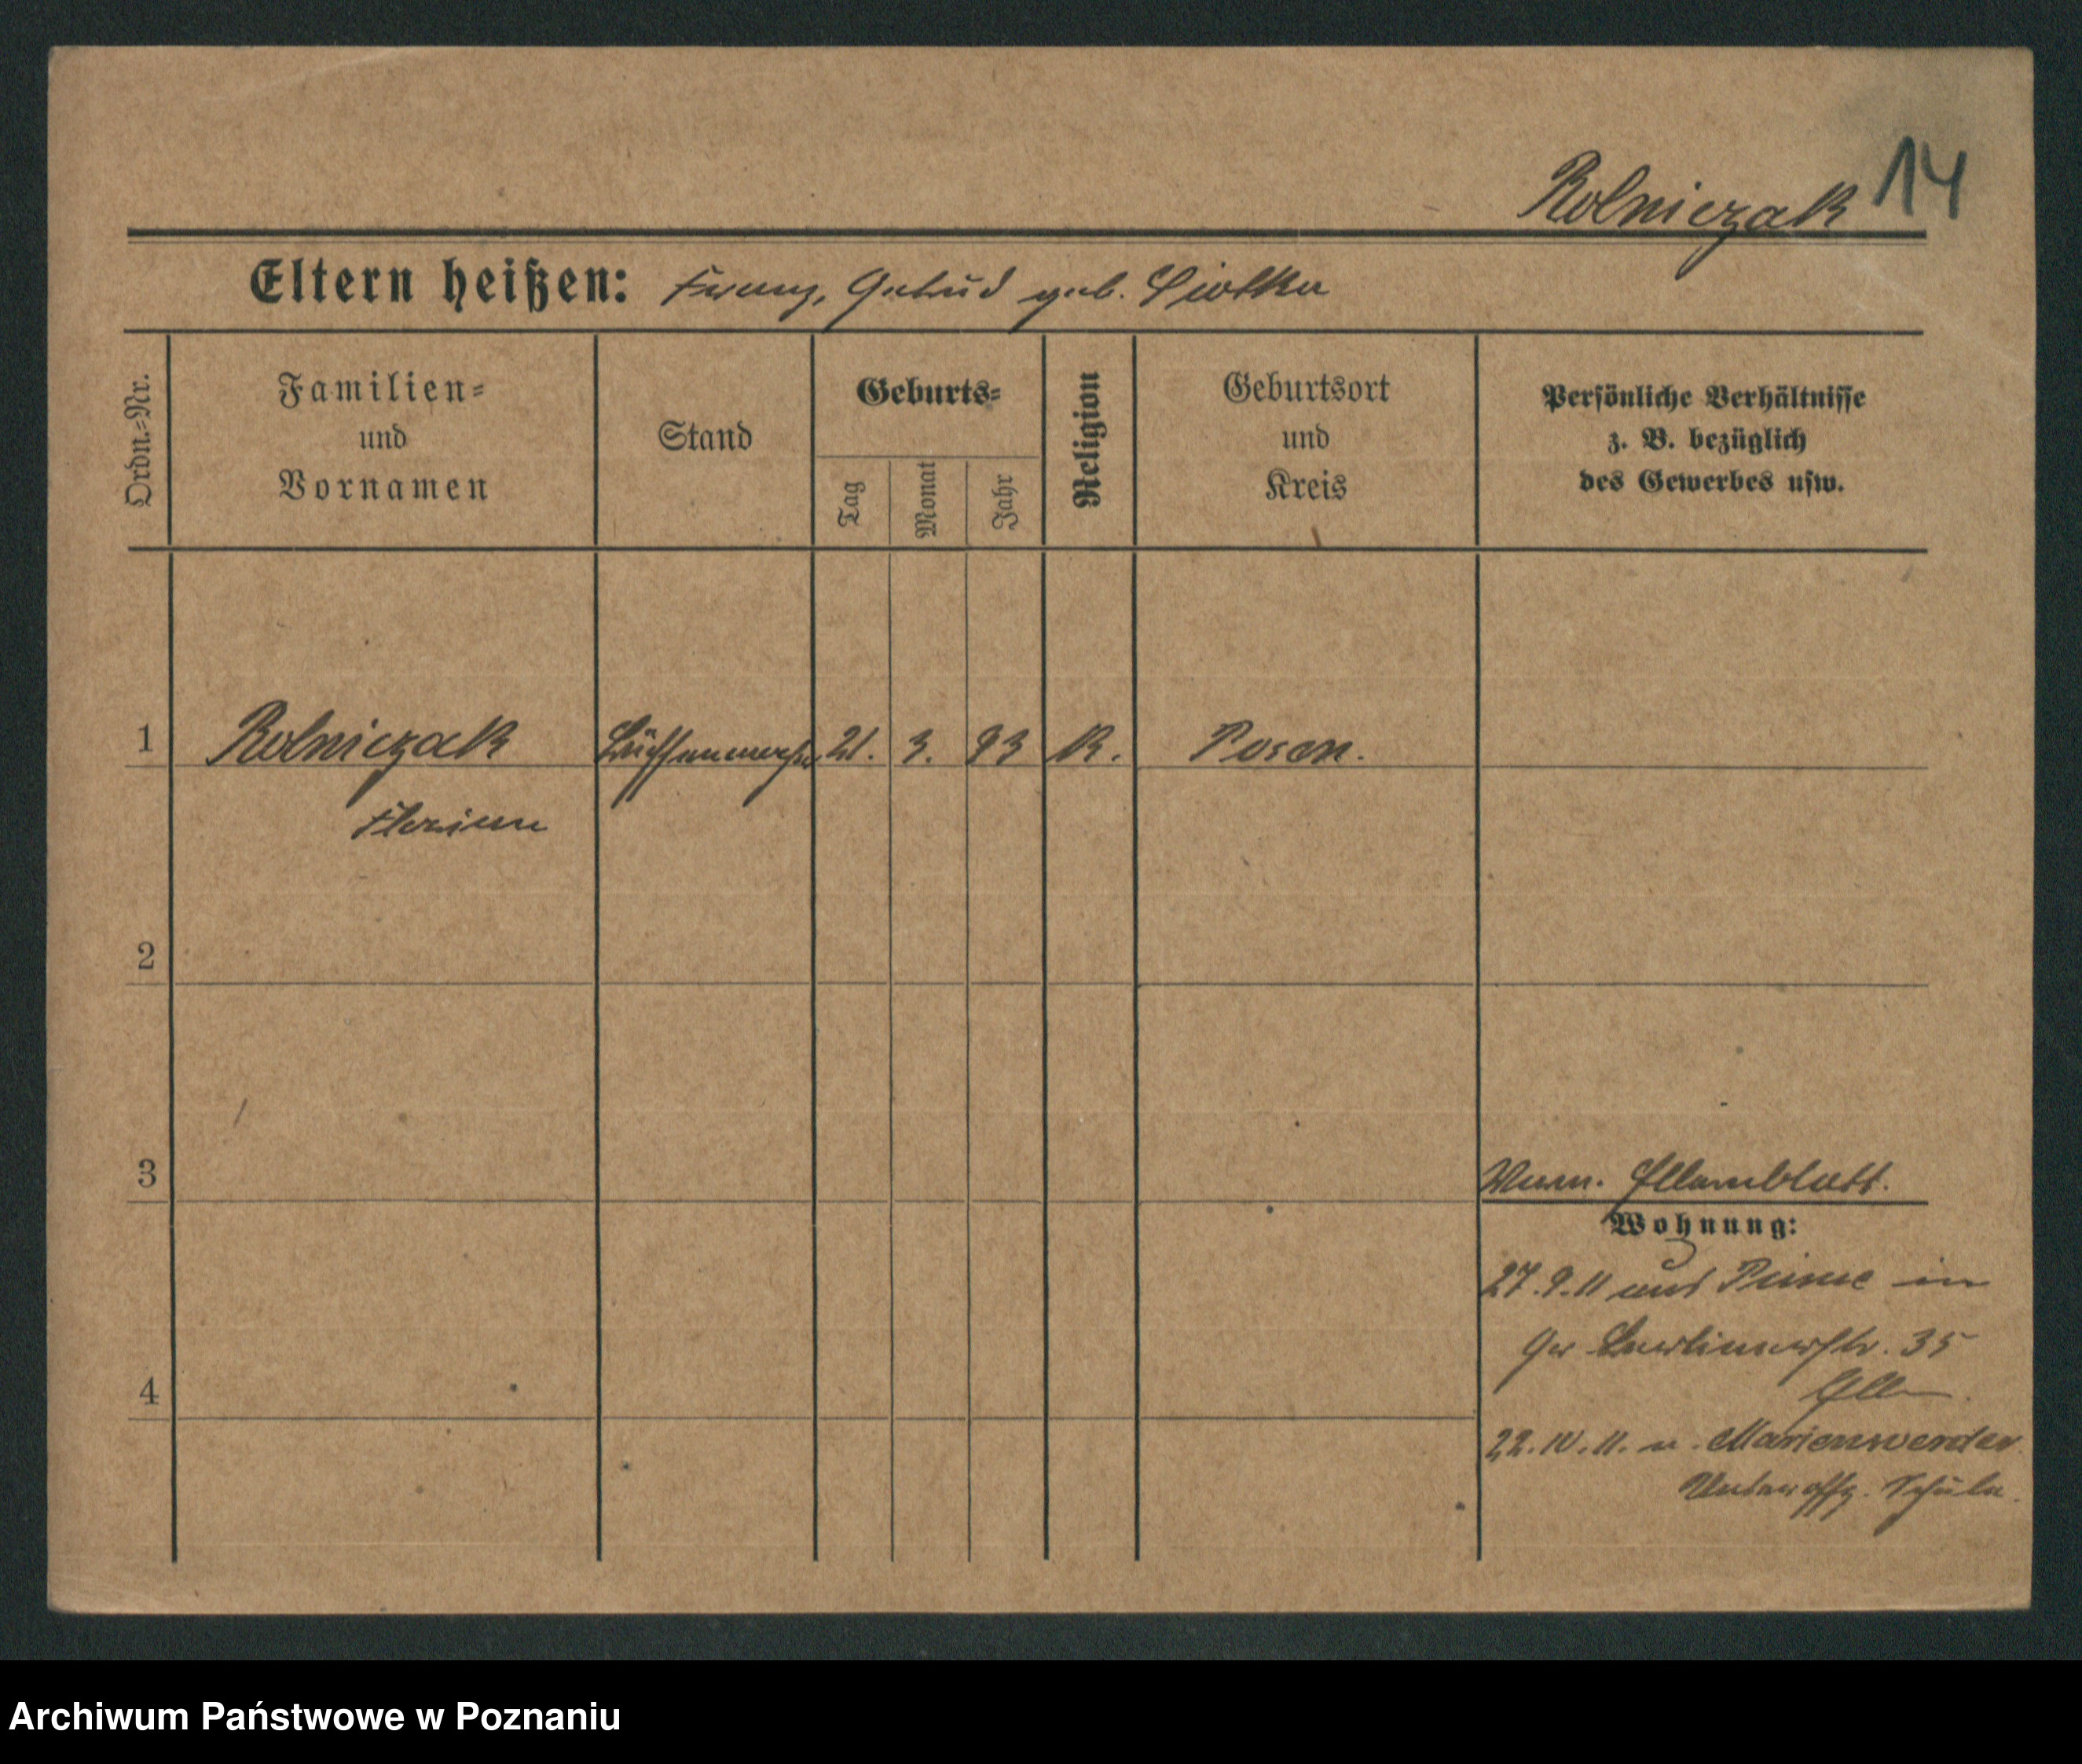 Rolniczak 14
Eltern heißen: Franz, Gertrud geb. Piotka
Ordn.=Nr.
Familien=
und
Vornamen
Stand
Geburts=
Tag
Monat
Jahr
Religion
Geburtsort
und
Kreis
Persönliche Verhältnisse
z. B. bezüglich
des Gewerbes usw.
1 Rolniczak Büchsenmacher 21. 3. 93 K. Posen.
Florian
2
3
Elternblatt.
Wohnung:
27.9.11 aus Pinne in
Gr Berlinerstr. 35
Eltern
4
22.10.11. n. Marienwerder
Unteroffz. Schule.
Archiwum Państwowe w Poznaniu